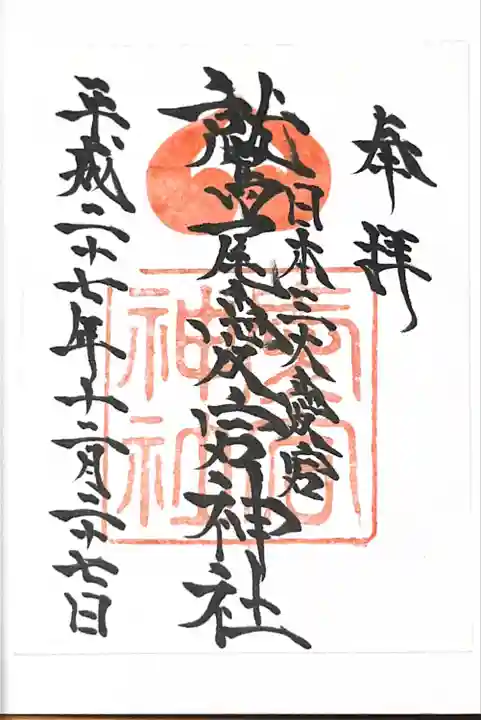 奉拝
日本三大愛宕
鷲尾愛宕神社
平成二十七年十二月二十七日
愛宕
神社